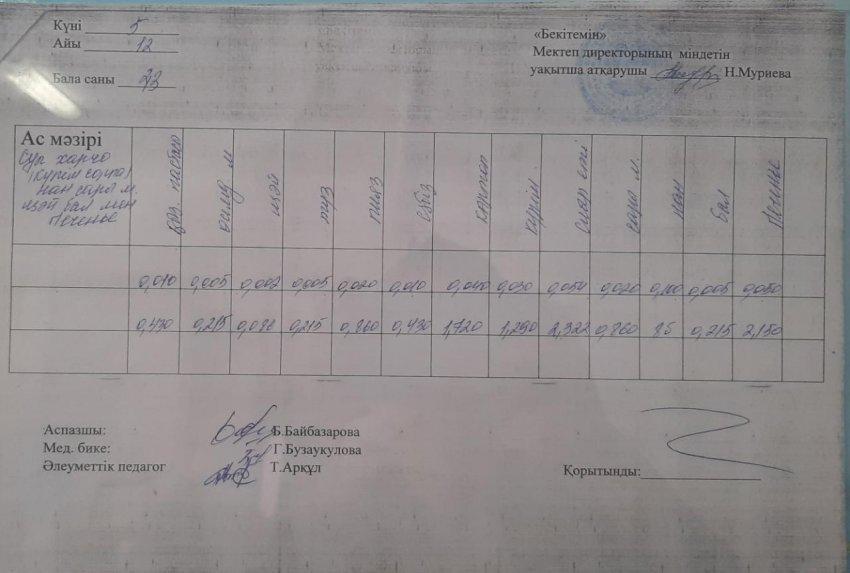 Күні 5
Айы 12
Бала саны
«Бекітемін»
Мектеп директорының міндетін
уақытша атқарушы Н.Муриева
Ас мәзірі
Суп харчо
(күріш сорпа)
нан сары м.
шәй бал мен
Печенье
шәй
тұз
пияз
сәбіз
картоп
күріш
сиыр еті
сары м.
нан
бал
Печенье
0,010 0,005 0,002 0,005 0,020 0,010 0,040 0,030 0,054 0,020 0,100 0,005 0,050
0,430 0,215 0,086 0,215 0,860 0,430 1,720 1,290 2,322 0,860 85 0,215 2,150
Аспазшы: Б.Байбазарова
Мед. бике: Г.Бузаукулова
Әлеуметтік педагог Т.Арқұл
Қорытынды: